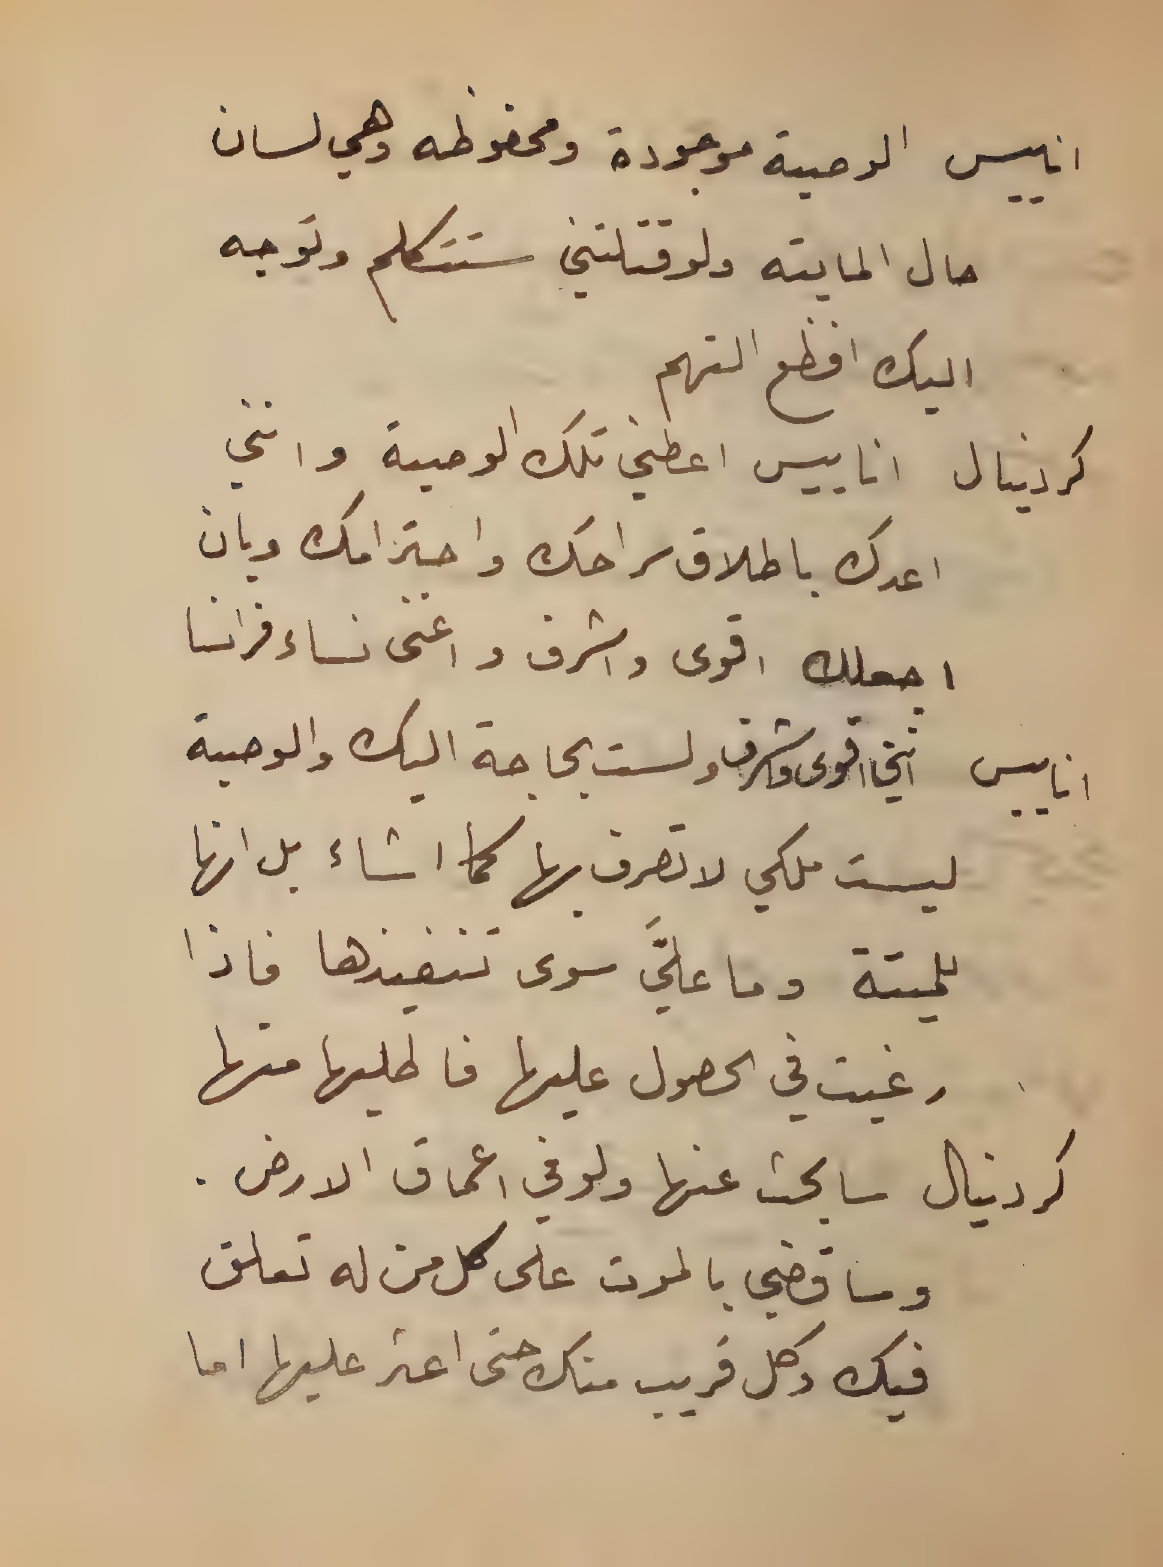 اناييس الوصية موجودة ومحفوظه وهي لسان
حال المايته ولو قتلتني ستتكلم وتوجه
اليك افظع التهم
كردينال اناييس اعطني تلك الوصية وانني
اعدك باطلاق سراحك واحترامك وبان
اجعلك اقوى واشرف واغنى نساء فرانسا
اناييس انني اقوى واشرف ولست بحاجة اليك والوصية
ليست ملكي لاتصرف بها كما اشاء بل انها
للميتة وما عليَّ سوى تنفيذها فاذا
رغبت في الحصول عليها فاطلبها منها
كردينال سابحث عنها ولو في اعماق الارض .
وساقضي بالموت على كل من له تعلق
فيك وكل قريب منك حتى اعثر عليها اما